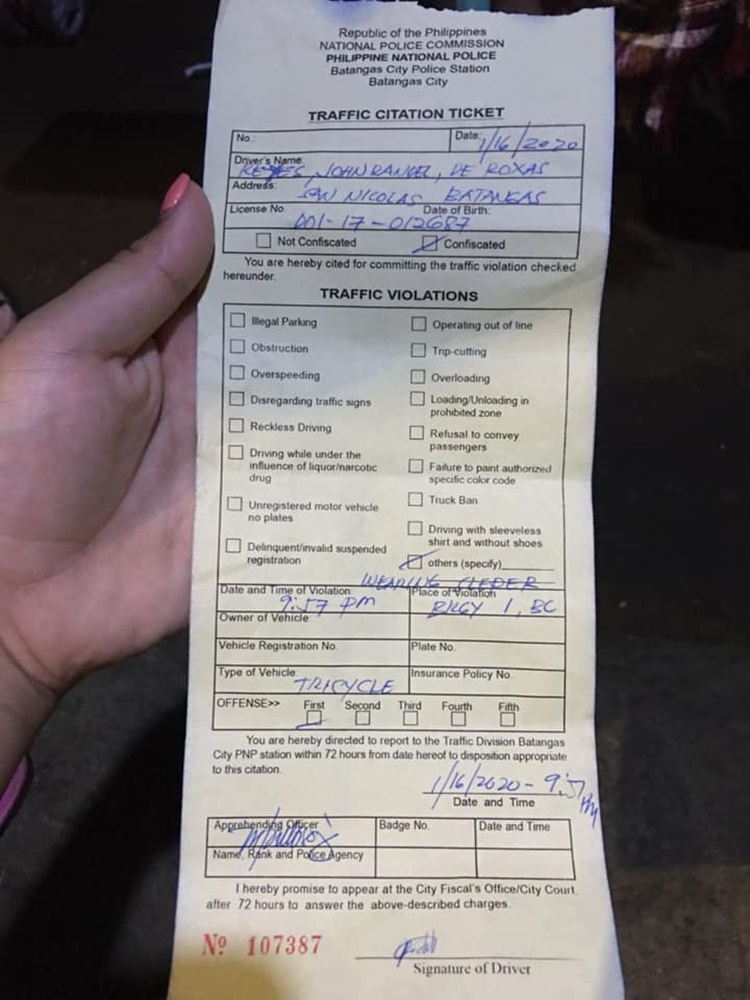 Republic of the Philippines
NATIONAL POLICE COMMISSION
PHILIPPINE NATIONAL POLICE
Batangas City Police Station
Batangas City
TRAFFIC CITATION TICKET
No.: Date: 1/16/2020
Driver's Name: REYES, JOHN RANGEL, DE ROXAS
Address: SAN NICOLAS BATANGAS
License No. Date of Birth:
D01-17-012687
Not Confiscated Confiscated
You are hereby cited for committing the traffic violation checked
hereunder.
TRAFFIC VIOLATIONS
Illegal Parking
Obstruction
Overspeeding
Disregarding traffic signs
Reckless Driving
Driving while under the
influence of liquor/narcotic
drug
Unregistered motor vehicle
no plates
Delinquent/invalid suspended
registration
Operating out of line
Trip-cutting
Overloading
Loading/Unloading in
prohibited zone
Refusal to convey
passengers
Failure to paint authorized
specific color code
Truck Ban
Driving with sleeveless
shirt and without shoes
others (specify)
WEARING
Date and Time of Violation: Place of Violation
9:57 PM BRGY 1, BC
Owner of Vehicle
Vehicle Registration No. Plate No.
Type of Vehicle: Insurance Policy No.
TRICYCLE
OFFENSE>> First Second Third Fourth Fifth
You are hereby directed to report to the Traffic Division Batangas
City PNP station within 72 hours from date hereof to disposition appropriate
to this citation.
1/16/2020 - 9:57 PM
Date and Time
Apprehending Officer Badge No. Date and Time
Name, Rank and Police Agency
I hereby promise to appear at the City Fiscal's Office/City Court
after 72 hours to answer the above-described charges.
Nº 107387
Signature of Driver